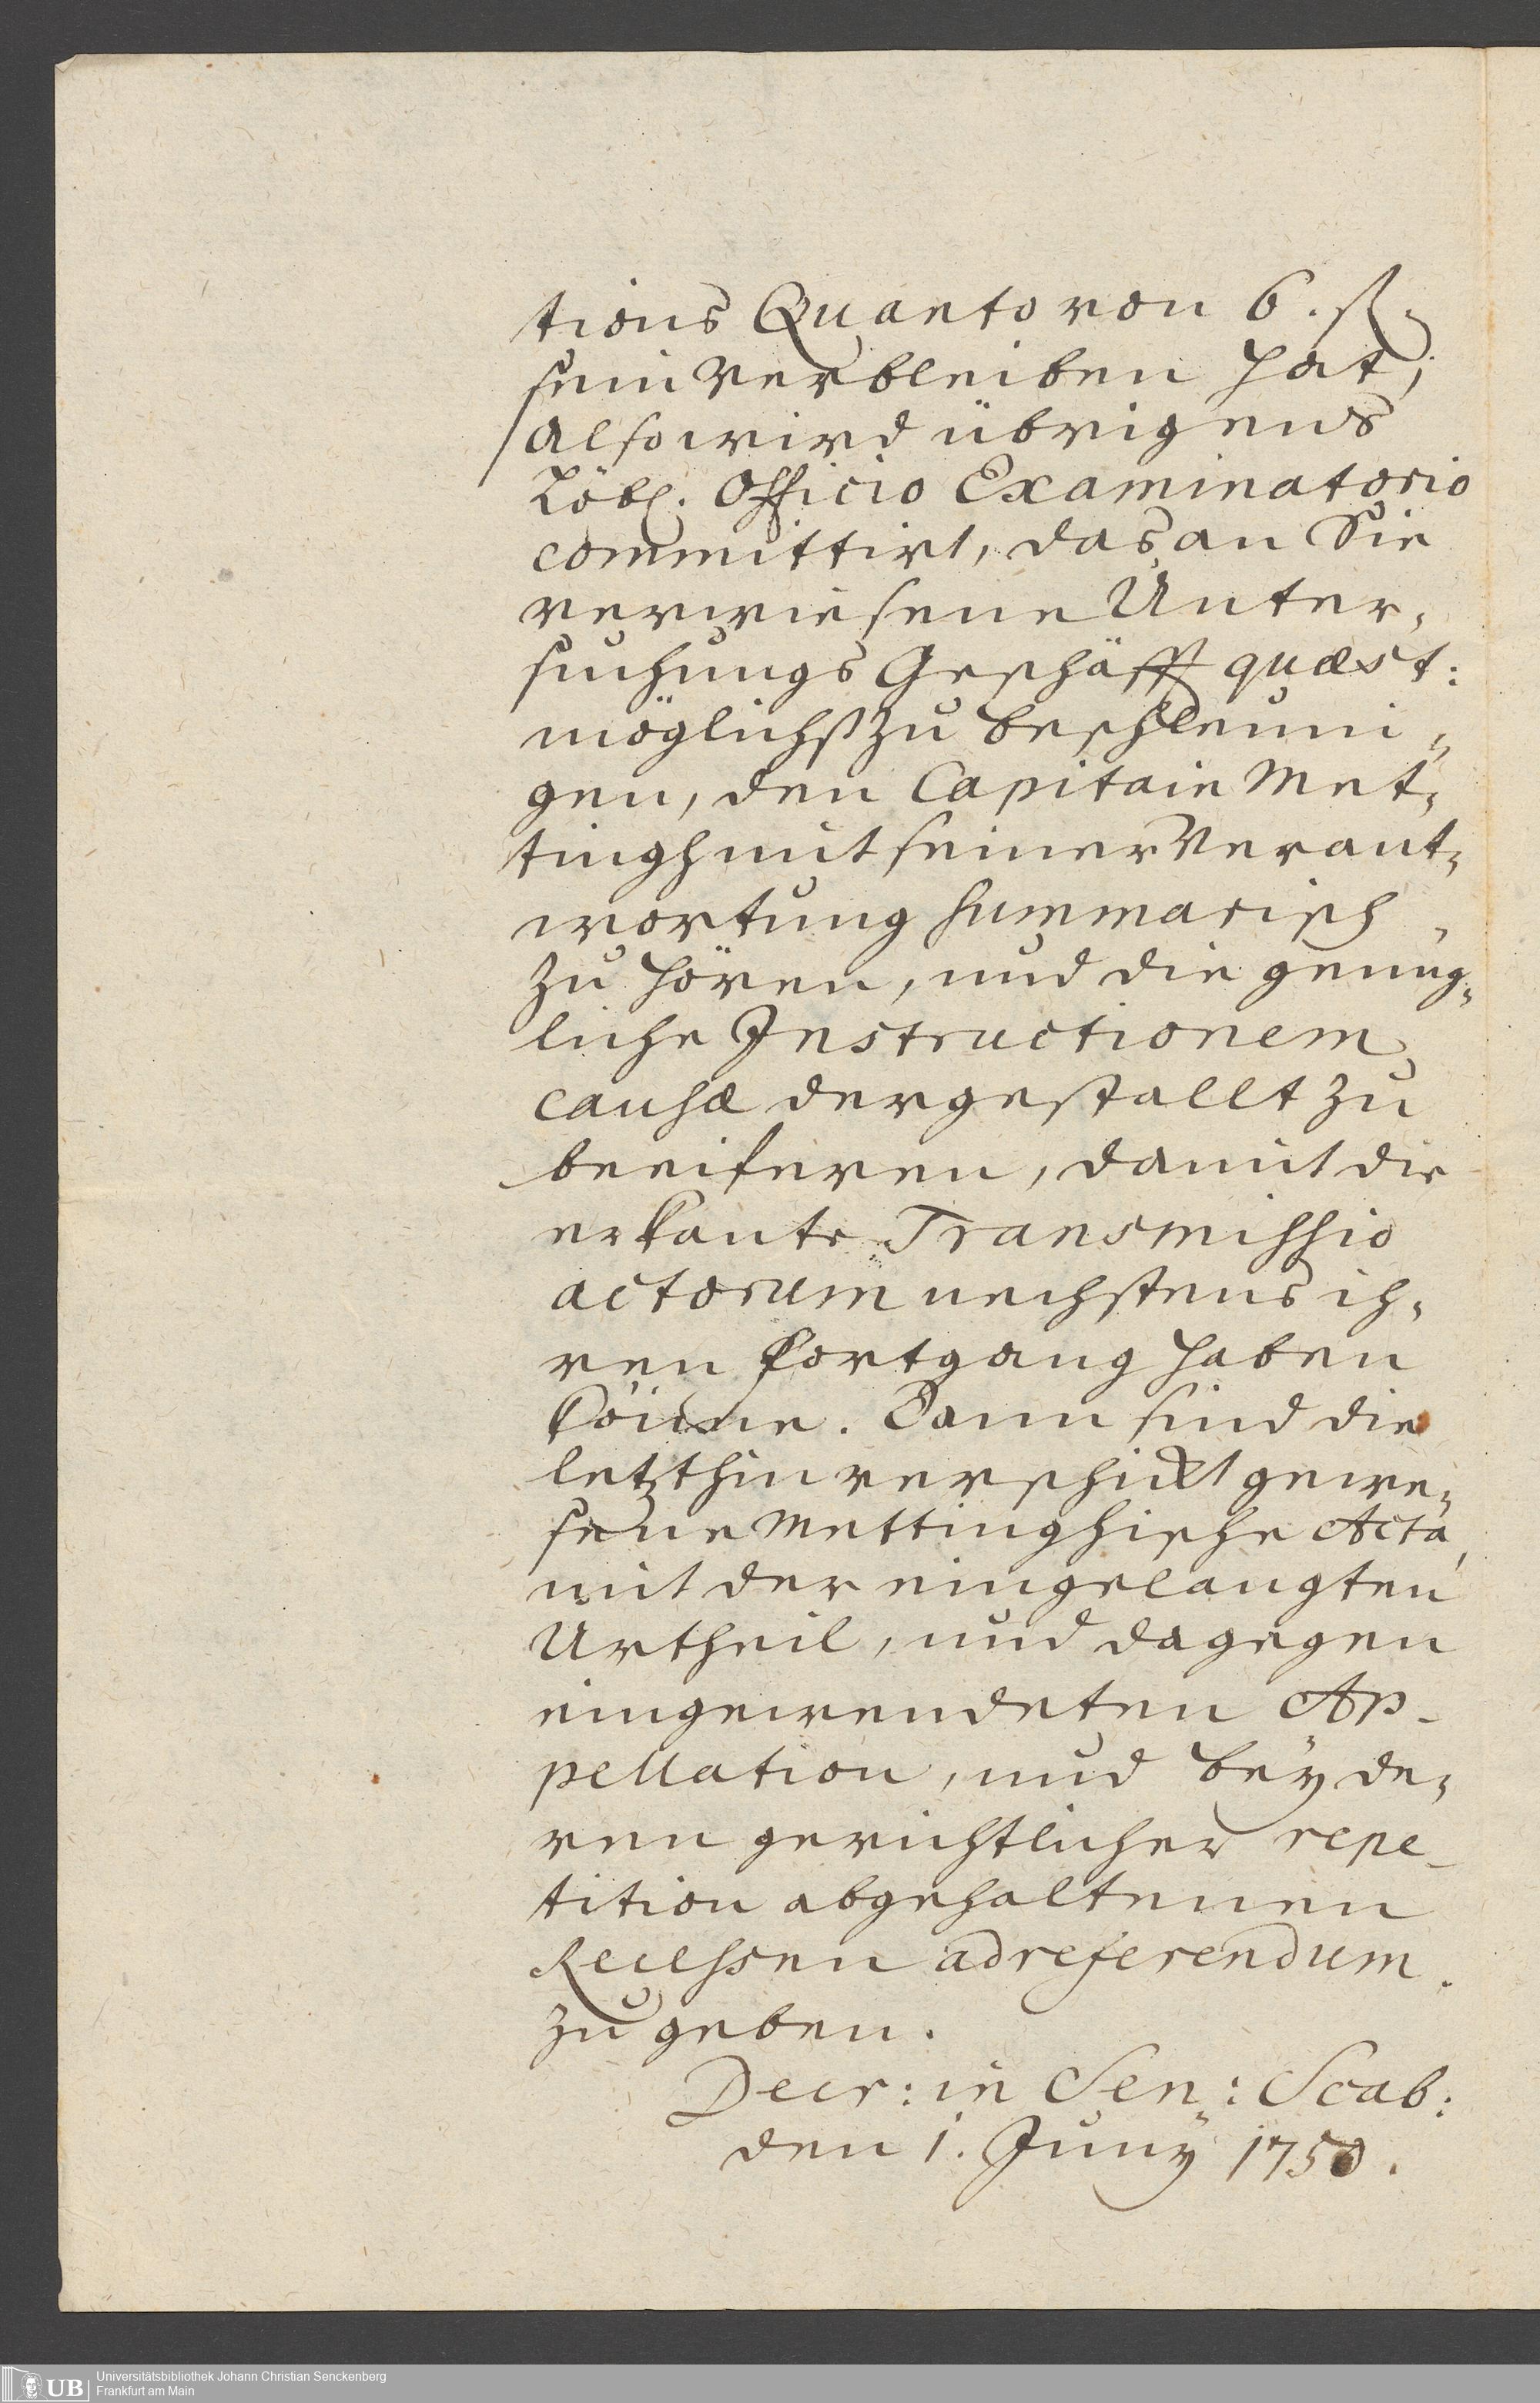 tions Quanto von 6. fl.
sein Verbleiben hat;
also wird übrigens
Löbl. Officio Examinatorio
committirt, das an Sie
verwiesene Unter-
suchungs Geschäfft quæst:
möglichst zu beschleuni-
gen, den Capitain Met-
tingh mit seiner Verant-
wortung summarisch
zu hören, und die genüg-
liche Instructionem
causæ dergestallt zu
beeiferen, damit die
erkante Transmissio
actorum nechstens ih-
ren Fortgang haben
könne. Dann sind die
letzthin verschickt gewe-
sene Mettinghische Acta,
mit der eingelangten
Urtheil, und dagegen
eingewendeten Ap-
pellation, und bey de-
ren gerichtlicher repe-
tition abgehaltenen
Recessen ad referendum
zu geben.
Decr: in Sen: Scab:
den 1. Juny 1750.
UB
Universitätsbibliothek Johann Christian Senckenberg
Frankfurt am Main